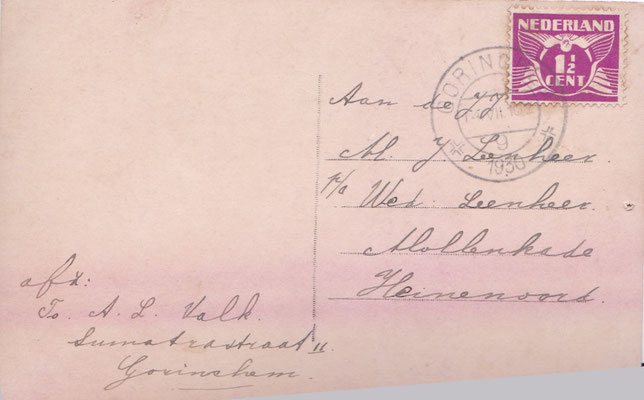 NEDERLAND
1½
CENT
GORINC
VII
9
1930
Aan de
M. J. Leenheer.
p/a Wed. Leenheer.
Mollenkade
Heinenoord.
afz:
To. A. L. Valk.
Sumatrastraat 11
Gorinchem.